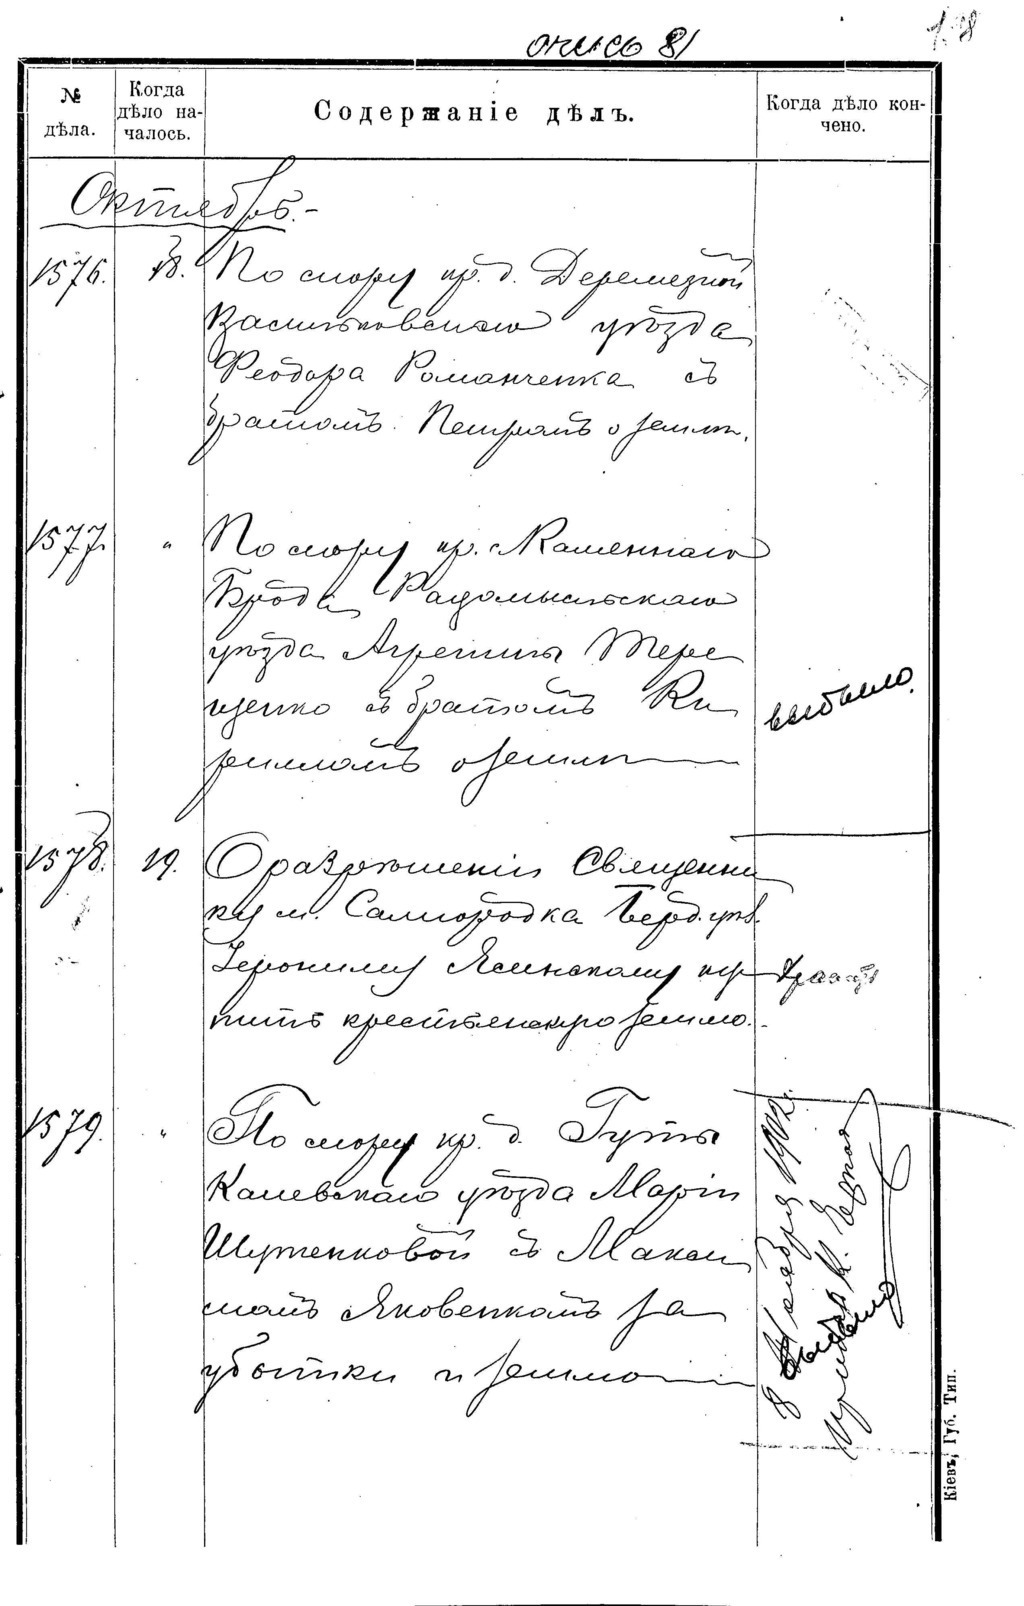 опись 81
№ дѣла.
Когда дѣло началось.
Содержаніе дѣлъ.
Когда дѣло кончено.
Октябрь.-
1576. 18. По спору кр. д. Деремезной
Васильковскаго уѣзда
Феодора Романченка съ
братомъ Петромъ о землѣ.
1577. " По спору кр. с. Каменнаго
Брода Радомысльскаго
уѣзда Агрепины Тере
щенко съ братомъ Ки
риломъ о землѣ
выбыло.
1578. 19. О разрѣшеніи Священни
ку м. Самгородка Берд. уѣз.
Іерониму Ясинскому ку
пить крестьянскую землю.
1579. " По спору кр. д. Гуты
Каневскаго уѣзда Маріи
Шутенковой съ Макси
момъ Яковенкомъ за
убытки и землю
8 Ноября 1902.
выбыло
Кіевъ, Губ. Тип.